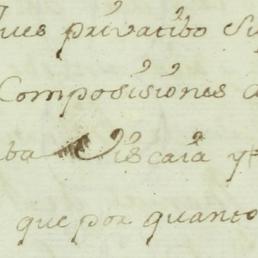 Jues privatibo Su
Composisiones d
ba Viscaia y
que por quanto